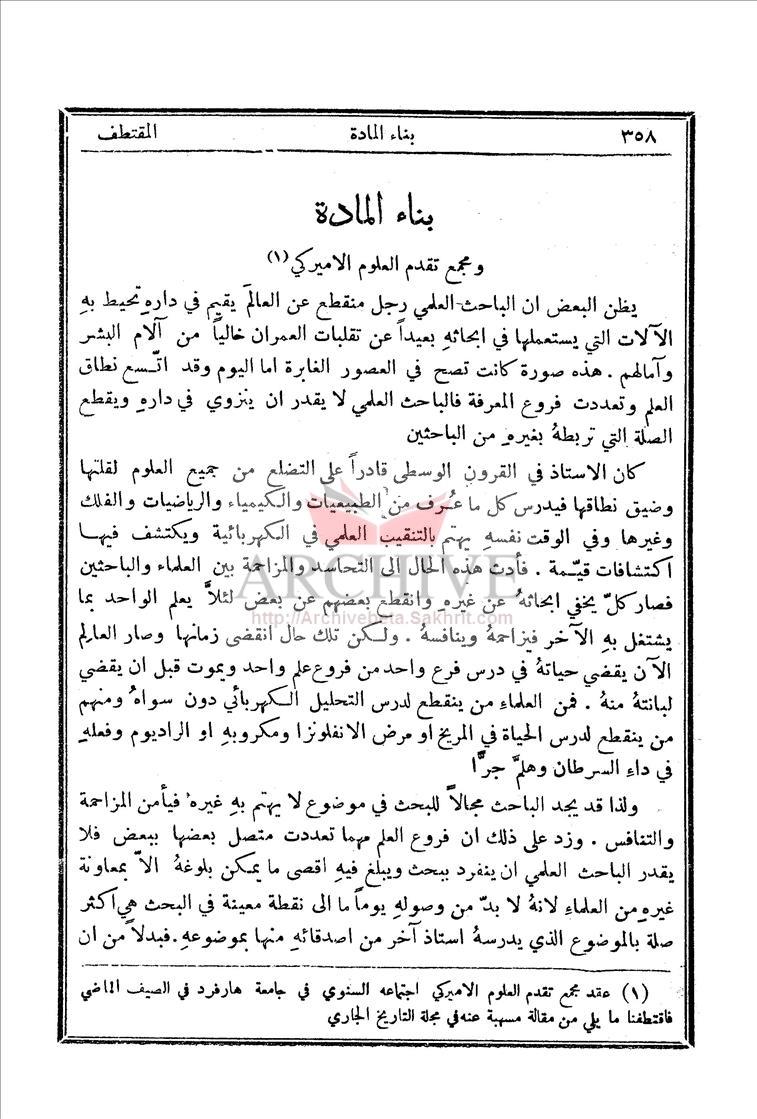 ٣٥٨ بناء المادة المقتطف
بناء المادة
ومجمع تقدم العلوم الاميركي (١)
يظن البعض ان الباحث العلمي رجل منقطع عن العالم يقيم في دارهِ تحيط بهِ
الآلات التي يستعملها في ابحاثهِ بعيداً عن تقلبات العمران خالياً من آلام البشر
وآمالهم . هذه صورة كانت تصح في العصور الغابرة اما اليوم وقد اتّسع نطاق
العلم وتعددت فروع المعرفة فالباحث العلمي لا يقدر ان ينزوي في دارهِ ويقطع
الصلة التي تربطهُ بغيرهِ من الباحثين
كان الاستاذ في القرون الوسطى قادراً على التضلع من جميع العلوم لقلتها
وضيق نطاقها فيدرس كل ما عُرف من الطبيعيات والكيمياء والرياضيات والفلك
وغيرها وفي الوقت نفسهِ يهتم بالتنقيب العلمي في الكهربائية ويكتشف فيها
اكتشافات قيّمة . فأدت هذه الحال الى التحاسد والمزاحمة بين العلماء والباحثين
فصار كلّ يخفي ابحاثهُ عن غيرهِ وانقطع بعضهم عن بعض لئلاَّ يعلم الواحد بما
يشتغل بهِ الآخر فيزاحمهُ وينافسهُ . ولكن تلك حال انقضى زمانها وصار العالِم
الآن يقضي حياتهُ في درس فرع واحد من فروع علم واحد ويموت قبل ان يقضي
لبانتهُ منهُ . فمن العلماء من ينقطع لدرس التحليل الكهربائي دون سواهُ ومنهم
من ينقطع لدرس الحياة في المريخ او مرض الانفلونزا ومكروبهِ او الراديوم وفعلهِ
في داءِ السرطان وهلمَّ جرًّا
ولذا قد يجد الباحث مجالاً للبحث في موضوع لا يهتم بهِ غيرهُ فيأمن المزاحمة
والتنافس . وزد على ذلك ان فروع العلم مهما تعددت متصل بعضها ببعض فلا
يقدر الباحث العلمي ان ينفرد ببحث ويبلغ فيهِ اقصى ما يمكن بلوغهُ الاّ بمعاونة
غيرهِ من العلماءِ لانهُ لا بدّ من وصولهِ يوماً ما الى نقطة معينة في البحث هي اكثر
صلة بالموضوع الذي يدرسهُ استاذ آخر من اصدقائهِ منها بموضوعهِ. فبدلاً من ان
(١) عقد مجمع تقدم العلوم الاميركي اجتماعه السنوي في جامعة هارفرد في الصيف الماضي
فاقتطفنا ما يلي من مقالة مسهبة عنه في مجلة التاريخ الجاري
ARCHIVE
http://Archivebeta.Sakhrit.com